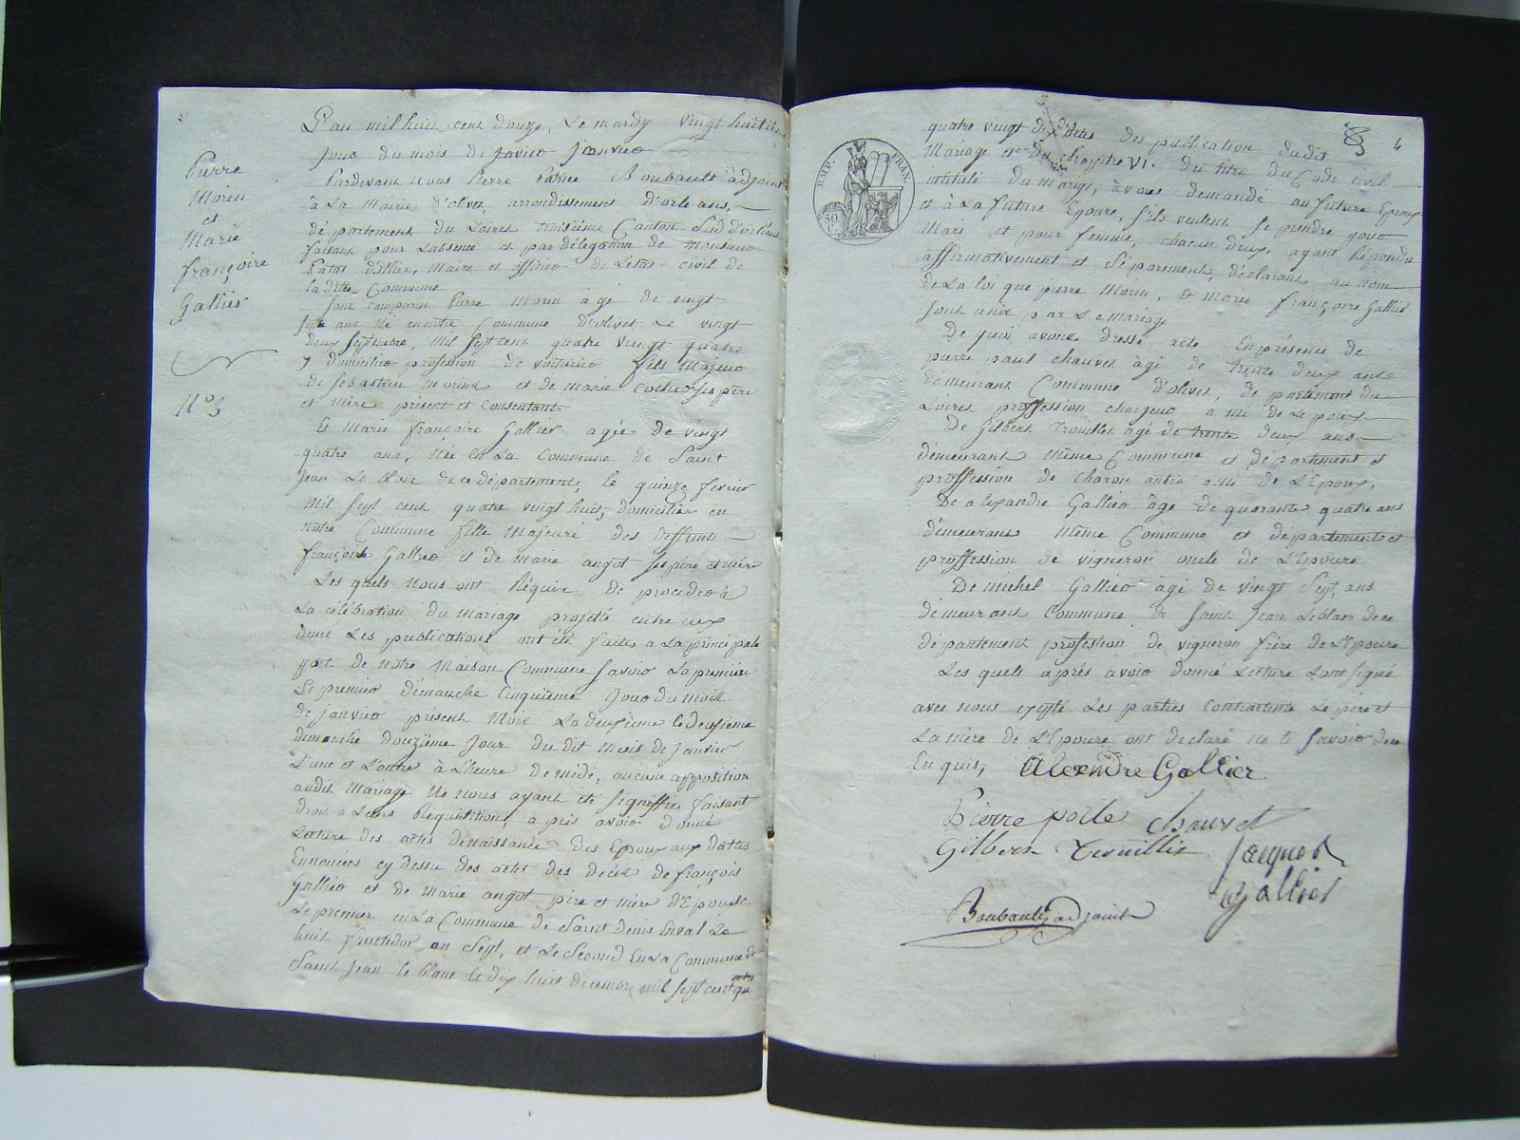 Pierre
Morin
et
Marie
françoise
Gallier
N° 3
L'an mil huit cent douze, Le mardy vingt huitième
Jour du mois de Janvier
Pardevant nous Pierre Boubault adjoint
à La Mairie d'olivet, arrondissement d'orleans,
département du Loiret troisième Canton Sud d'orleans
faisant pour L'absence et par délégation de Monsieur
Maire et officier de L'etat civil de
la ditte Commune
Sont comparu Pierre Morin âgé de vingt
Sept ans né en notre Commune d'olivet Le vingt
deux Septembre, mil Sept cent quatre vingt quatre
y domicilié profession de voiturier fils Majeur
de Sébastien morin et de Marie Ses père
et mère présent et Consentant
Et Marie françoise Gallier agée de vingt
quatre ans, née en La Commune de Saint
Jean Le Blanc de ce département, le quinze fevrier
Mil Sept cent quatre vingt huit, domiciliée en
notre Commune fille Majeure des deffunts
françois Gallier et de marie angot Ses père et mère
Les quels nous ont Réquis de proceder à
La célébration du mariage projetté entre eux
dont Les publications ont été faites a La principale
porte de notre Maison Commune Savoir La première
Le premier démanche Cinquième Jour du mois
de janvier présent Mois La deuxième le deuxième
dimanche douzième Jour du dit mois de Janvier
L'une et L'autre à L'heure de midi, aucune opposition
audit Mariage Ne nous ayant été Signiffiée faisant
droit a Leurs Réquisitions après avoir donné
Lecture des actes de naissance des Epoux aux dattes
Ennoncées cy dessus des actes des décès de françois
Gallier et de Marie angot père et mère de L'Épouse
Le premier en La Commune de Saint denis enval Le
huit fructidor an Sept, et Le Second En La Commune de
Saint Jean le Blanc le dix huit decembre mil Sept cent
quatre vingt dix des actes des publication dudit
Mariage et du Chapitre VI. du titre du Code Civil
intitulé Du Mariage, avons demandé au future Epoux
et à La future Épouse, S'ils veulent Se prendre pour
Mari et pour femme, chacun d'eux, ayant Répondu
affirmativement et Séparement, déclarons au nom
de La loi que pierre Morin, & Marie françoise Gallier
Sont unis par Le Mariage
De quoi avons dressé acte En présence de
pierre paul chauvet âgé de trente deux ans
demeurant Commune d'olivet, departement du
Loiret proffession chargeur ami de L'epoux
De Gilbert Trouillet âgé de trente deux ans
démeurant même Commune et département et
proffession de charon aussi ami de L'Epoux,
De alexandre Gallier âgé de quarante quatre ans
démeurant Même Commune et département et
proffession de vigneron oncle de L'Epouse
De michel Gallier âgé de vingt Sept ans
démeurant Commune de Saint Jean Leblanc de ce
département profession de vigneron frère de L'Epouse
Les quels après avoir donné Lecture L'ont Signé
avec nous excepté Les parties Contractante Le pere et
La mère de L'Epoux ont déclaré ne le Savoir de ce
Enquis,
Alexendre Gallier
Pierre polle chauvet
Gilbert Trouillet
Jacques
Gallier
Boubault adjoint
EMP. FRAN.
50